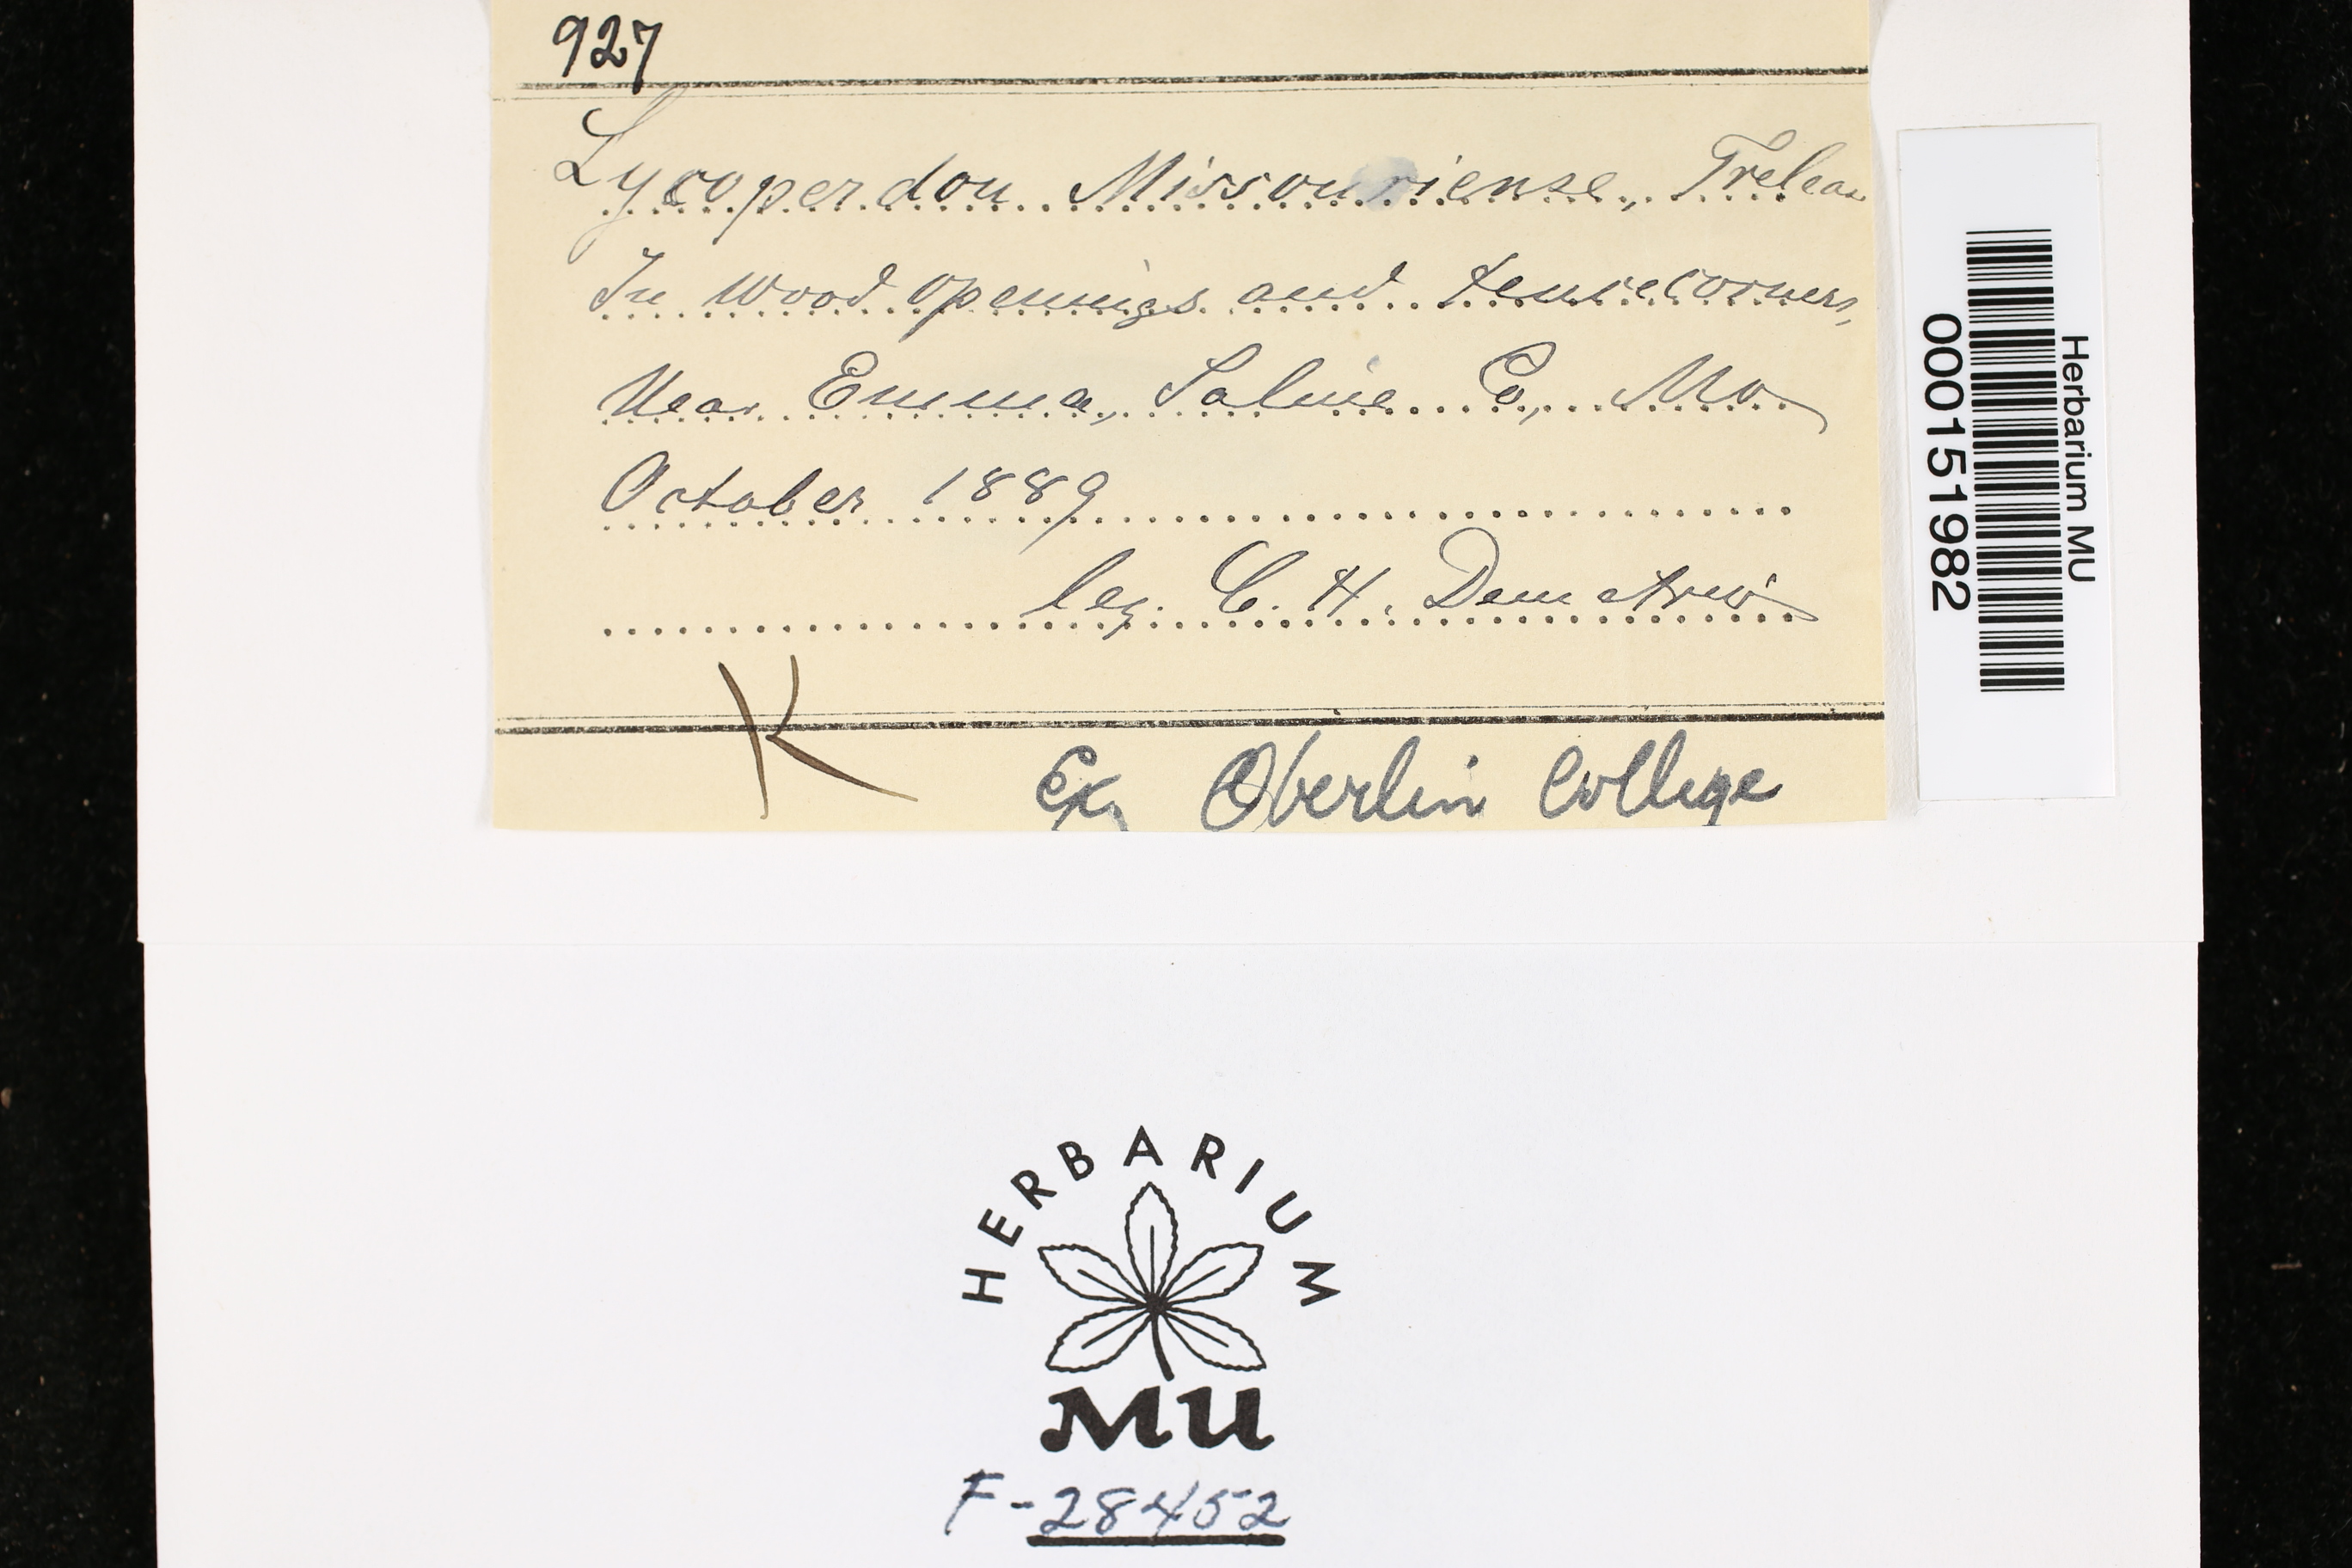 927
Lycoperdon Missouriense, Trelease
In wood openings and fence corners,
Near Emma, Saline Co, Mo
October 1889
leg. C. H. Demetrio
K
Ex Oberlin College
Herbarium MU
000151982
HERBARIUM
MU
F-28452